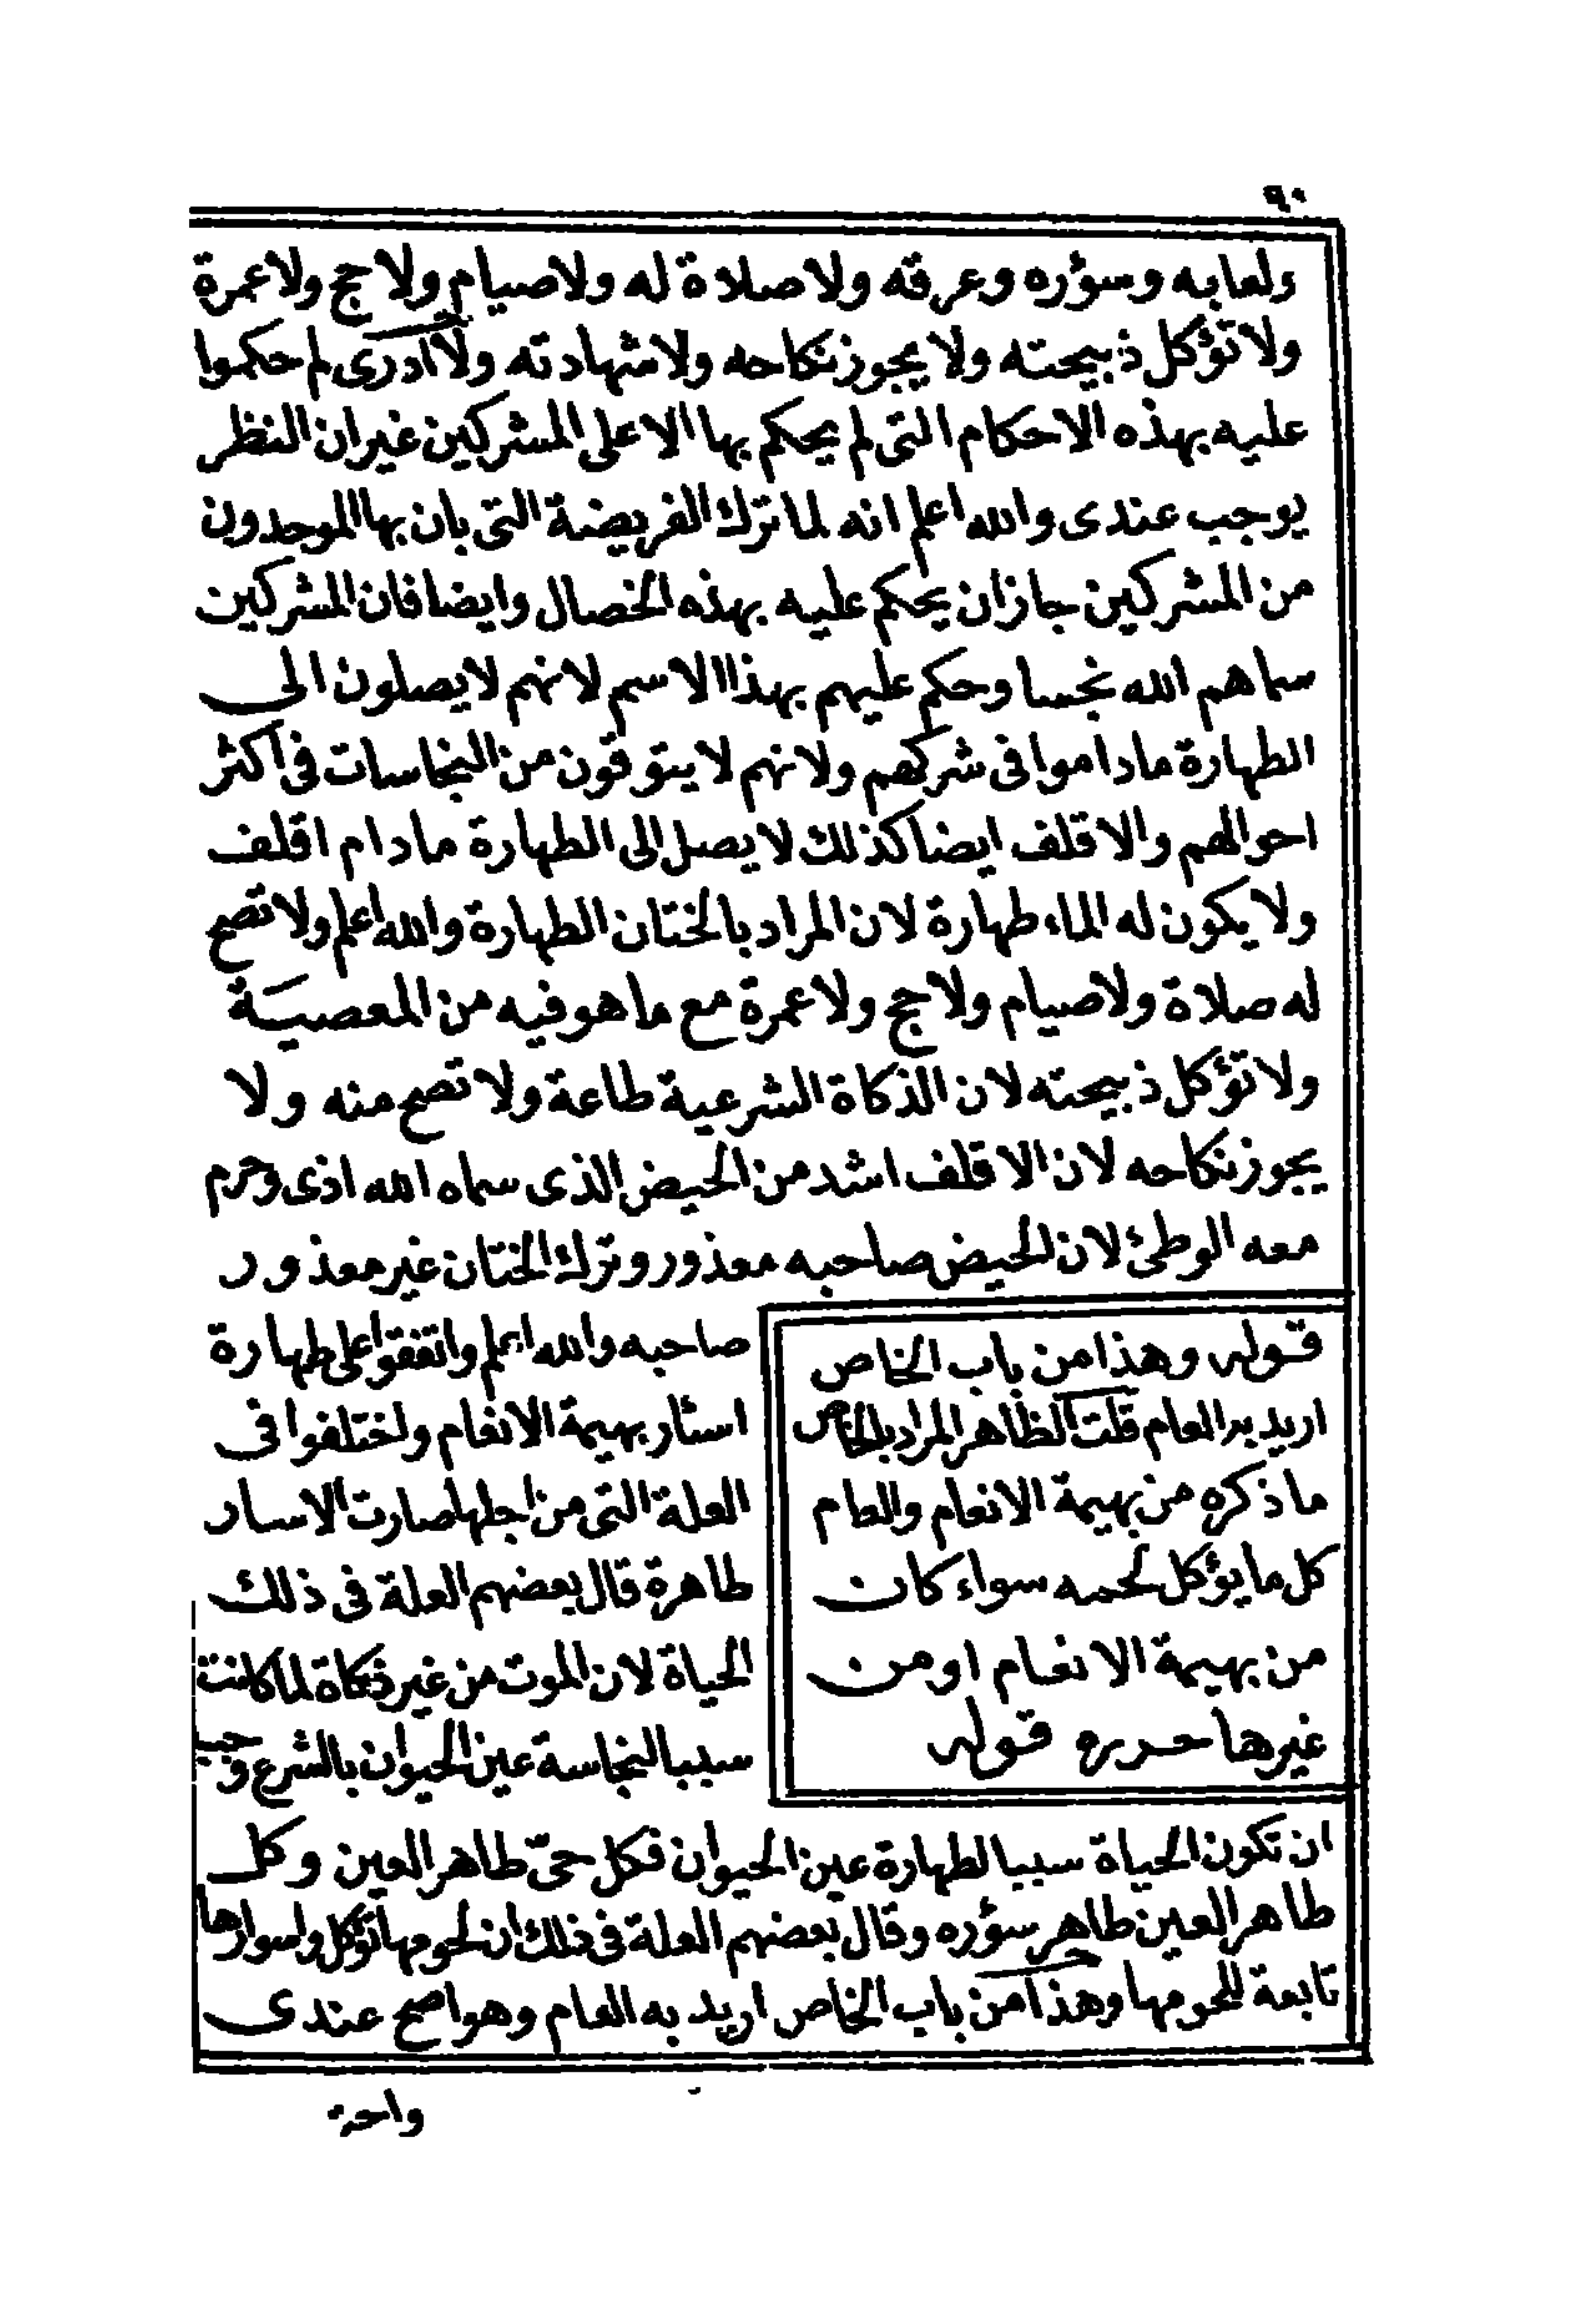 ٩٠
ولعابه وسؤره وعرقه ولا صلاة له ولا صيام ولا حج ولا عمرة
ولا تؤكل ذبيحته ولا يجوز نكاحه ولا شهادته ولا ادرى لم حكموا
عليه بهذه الاحكام التى لم يحكم بها الا على المشركين غير ان النظر
يوجب عندى والله اعلم انه لما ترك الفريضة التى بان بها الموحدون
من المشركين جاز ان يحكم عليه بهذه الخصال وايضا فان المشركين
سماهم الله نجسا وحكم عليهم بهذا الاسم لانهم لا يصلون الى
الطهارة ماداموا فى شركهم ولانهم لا يتوقون من النجاسات فى اكثر
احوالهم والاقلف ايضا كذلك لا يصل الى الطهارة مادام اقلف
ولا يكون له الماء طهارة لان المراد بالختان الطهارة والله اعلم ولا تصح
له صلاة ولا صيام ولا حج ولا عمرة مع ما هو فيه من المعصية
ولا تؤكل ذبيحته لان الذكاة الشرعية طاعة ولا تصح منه ولا
يجوز نكاحه لان الاقلف اشد من الحيض الذى سماه الله اذى وحرم
معه الوطئ لان الحيض صاحبه معذور وترك الختان غير معذور
صاحبه والله اعلم واتفقوا على طهارة
اسئار بهيمة الانعام واختلفوا فى
العلة التى من اجلها صارت الاسار
طاهرة قال بعضهم العلة فى ذلك
الحياة لان الموت من غير ذكاة لما كانت
سببا لنجاسة عين الحيوان بالشرع وجب
ان تكون الحياة سببا لطهارة عين الحيوان فكل حىّ طاهر العين وكل
طاهر العين طاهر سؤره وقال بعضهم العلة فى ذلك ان لحومها تؤكل واسوارها
تابعة للحومها وهذا من باب الخاص اريد به العام وهو اصح عندى
قوله وهذا من باب الخاص
اريد به العام قلت الظاهر المراد بالخاص
ما ذكره من بهيمة الانعام والعام
كل ما يؤكل لحمه سواء كان
من بهيمة الانعام او من
غيرها حرره قوله
واحتـ